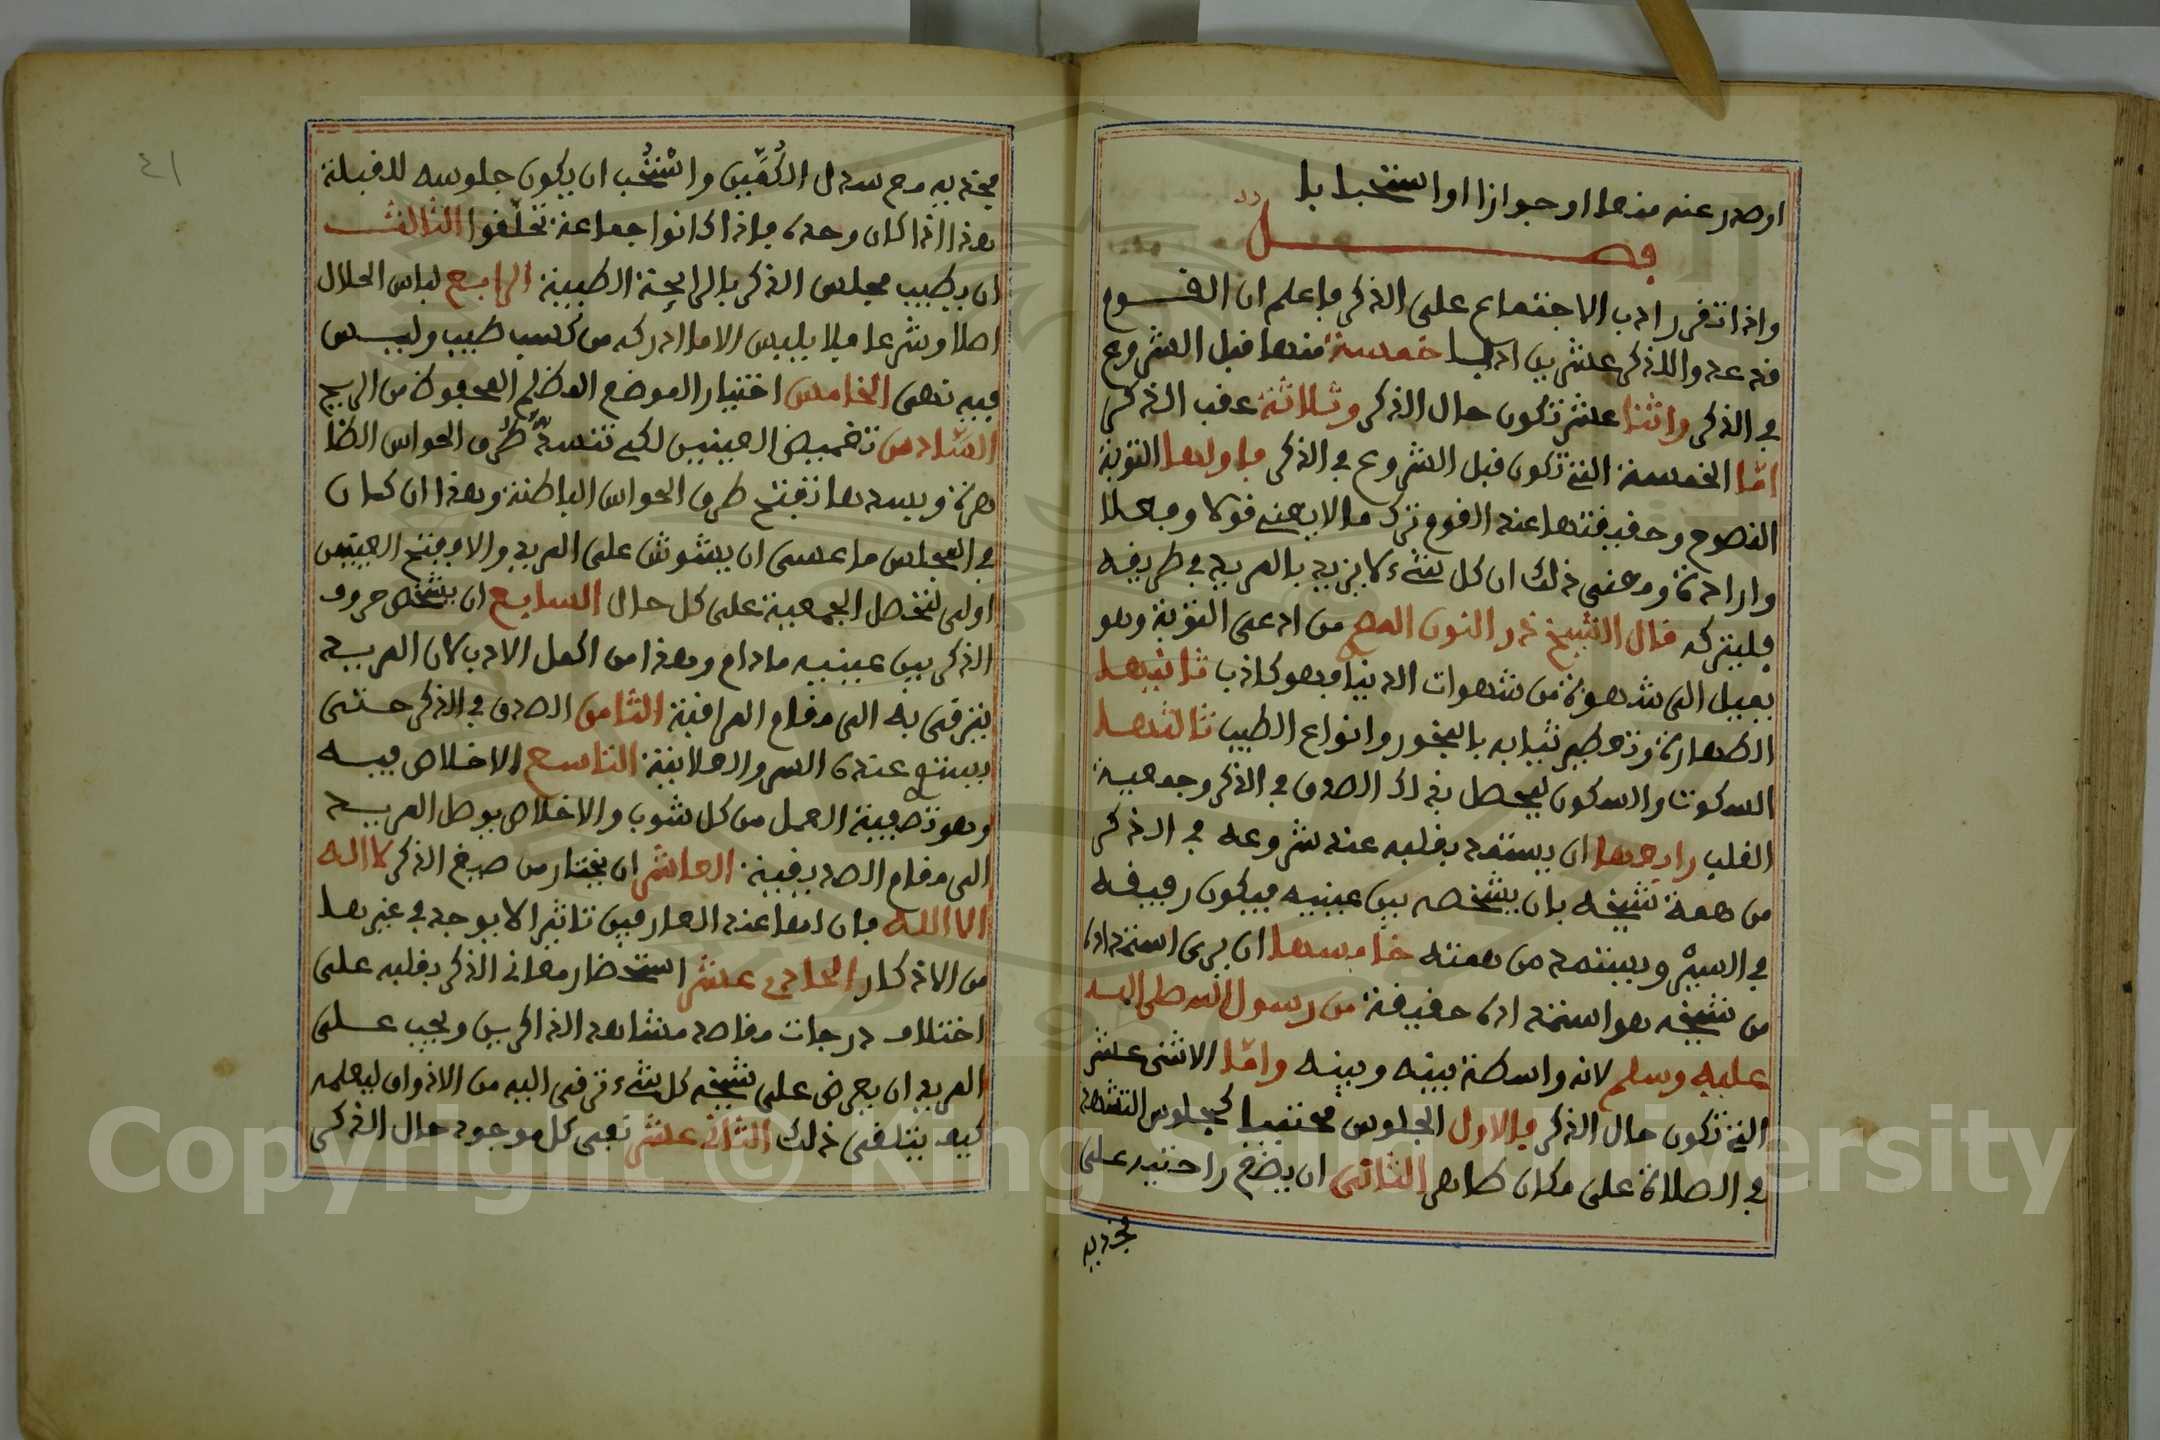 او صدر عنه منعا او جوازا او استحبابا
فصل
واذا تقرر ادب الاجتماع على الذكر فاعلم ان القوم
قد عدوا للذكر عشرين ادبا خمسة منها قبل الشروع
في الذكر واثنا عشر تكون حال الذكر وثلاثة عقب الذكر
امّا الخمسة التي تكون قبل الشروع في الذكر فاولها التوبة
النصوح وحقيقتها عند القوم ترك ما لا يعنى قولا وفعلا
وارادة ومعنى ذلك ان كل شيء لا يزيد بالمريد في طريقه
فليتركه قال الشيخ ذو النون المصرى من ادعى التوبة وهو
يميل الى شهوة من شهوات الدنيا فهو كاذب ثانيها
الطهارة وتعطير ثيابه بالبخور وانواع الطيب ثالثها
السكوت والسكون ليحصل بذلك الصدق في الذكر وجمعية
القلب رابعها ان يستمد بقلبه عند شروعه في الذكر
من همة شيخه بان يشخصه بين عينيه فيكون رفيقه
في السير ويستمد من همته خامسها ان يرى استمداده
من شيخه هو استمداده حقيقة من رسول الله صلى الله
عليه وسلم لانه واسطة بينه وبينه وامّا الاثنى عشر
التي تكون حال الذكر فالاول الجلوس محتبيا كجلوس التشهد
في الصلاة على مكان طاهر الثانى ان يضع راحتيه على
فخذيه
٤١
فخذيه مع سدل الكُمّين واسْتُحب ان يكون جلوسه للقبلة
هذا اذا كان وحده فاذا كانوا جماعة تحلّقوا الثالث
ان يطيب مجلس الذكر بالرايحة الطيبة الرابع لباس الحلال
اصلا وشرعا فلا يلبس الا ما ادركه من كسب طيب وليس
فيه نهى الخامس اختيار الموضع المظلم المحفوظ من الريح
السّادس تغميض العينين لكي تنسدّ طُرق الحواس الظا
هرة وبسدها تفتح طرق الحواس الباطنة وهذا ان كان
في المجلس ما عسى ان يشوش على المريد والا ففتح العينين
اولى لتحصل الجمعية على كل حال السابع ان يشخص حروف
الذكر بين عينيه مادام وهذا من اكمل الادب لان المريد
يترقى به الى مقام المراقبة الثامن الصدق في الذكر حتى
يستوي عنده السر والعلانية التاسع الاخلاص فيه
وهو تصفية العمل من كل شوب والاخلاص يوصل المريد
الى مقام الصديقية العاشر ان يختار من صيغ الذكر لا اله
الا الله فان لها عند العارفين تاثيرا لا يوجد في غيرها
من الاذكار الحادي عشر استحضار معاني الذكر بقلبه على
اختلاف درجات مقاصد مشاهد الذاكرين ويجب على
المريد ان يعرض على شيخه كل شيء ترقى اليه من الاذواق ليعلمه
كيف يتلقى ذلك الثاني عشر نفى كل موجود حال الذكر
Copyright © King Saud University